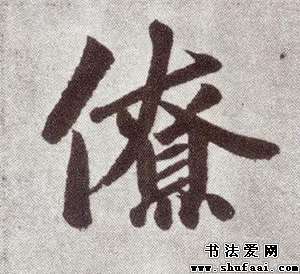 僚
书法爱网
www.shufaai.com